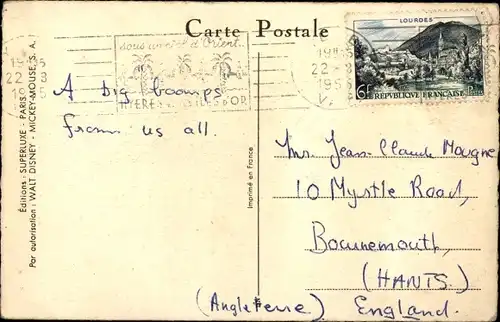 Carte Postale
LOURDES
6F REPUBLIQUE FRANÇAISE
sous un ciel d'Orient..
HYERES
D'OR
22 - 8
22 - 8
A big boomps
from us all.
Mr. Jean-Claude Mougne
10 Myrtle Road,
Bournemouth,
(HANTS)
(Angleterre) England.
Editions : SUPERLUXE - PARIS
Par autorisation : WALT DISNEY - MICKEY-MOUSE, S. A. I.
Imprimé en France